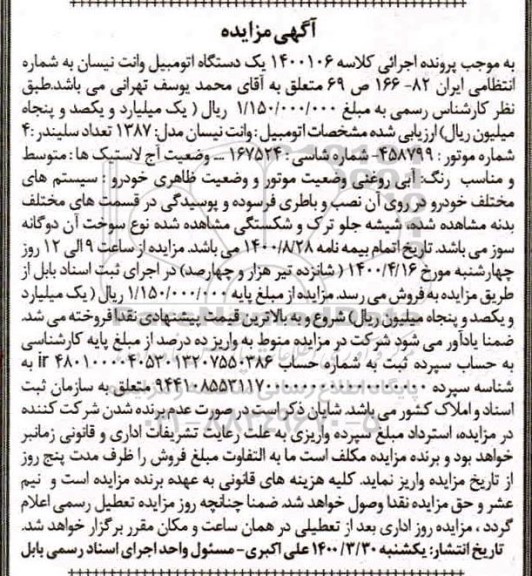 آگهی مزایده
به موجب پرونده اجرائی کلاسه ۱۴۰۰۱۰۶ یک دستگاه اتومبیل وانت نیسان به شماره
انتظامی ایران ۸۲- ۱۶۶ ص ۶۹ متعلق به آقای محمد یوسف تهرانی می باشد.طبق
نظر کارشناس رسمی به مبلغ ۱/۱۵۰/۰۰۰/۰۰۰ ریال ( یک میلیارد و یکصد و پنجاه
میلیون ریال) ارزیابی شده مشخصات اتومبیل : وانت نیسان مدل: ۱۳۸۷ تعداد سلیندر :۴
شماره موتور : ۴۵۸۷۹۹- شماره شاسی : ۱۶۷۵۲۴ ... وضعیت آج لاستیک ها : متوسط
و مناسب رنگ: آبی روغنی وضعیت موتور و وضعیت ظاهری خودرو : سیستم های
مختلف خودرو در روی آن نصب و باطری فرسوده و پوسیدگی در قسمت های مختلف
بدنه مشاهده شده، شیشه جلو ترک و شکستگی مشاهده شده نوع سوخت آن دوگانه
سوز می باشد. تاریخ اتمام بیمه نامه ۱۴۰۰/۸/۲۸ می باشد. مزایده از ساعت ۹ الی ۱۲ روز
چهارشنبه مورخ ۱۴۰۰/۴/۱۶ ( شانزده تیر هزار و چهارصد) در اجرای ثبت اسناد بابل از
طریق مزایده به فروش می رسد. مزایده از مبلغ پایه ۱/۱۵۰/۰۰۰/۰۰۰ ریال ( یک میلیارد
و یکصد و پنجاه میلیون ریال) شروع و به بالاترین قیمت پیشنهادی نقدا فروخته می شد.
ضمنا یادآور می شود شرکت در مزایده منوط به واریز ده درصد از مبلغ پایه کارشناسی
به حساب سپرده ثبت به شماره حساب ir ۴۸۰۱۰۰۰۰۴۰۵۳۰۱۳۲۰۷۵۵۰۳۸۶ به
شناسه سپرده متعلق به سازمان ثبت
اسناد و املاک کشور می باشد. شایان ذکر است در صورت عدم برنده شدن شرکت کننده
در مزایده، استرداد مبلغ سپرده واریزی به علت رعایت تشریفات اداری و قانونی زمانبر
خواهد بود و برنده مزایده مکلف است ما به التفاوت مبلغ فروش را ظرف مدت پنج روز
از تاریخ مزایده واریز نماید. کلیه هزینه های قانونی به عهده برنده مزایده است و نیم
عشر و حق مزایده نقدا وصول خواهد شد. ضمنا چنانچه روز مزایده تعطیل رسمی اعلام
گردد ، مزایده روز اداری بعد از تعطیلی در همان ساعت و مکان مقرر برگزار خواهد شد.
تاریخ انتشار: یکشنبه ۱۴۰۰/۳/۳۰ علی اکبری- مسئول واحد اجرای اسناد رسمی بابل